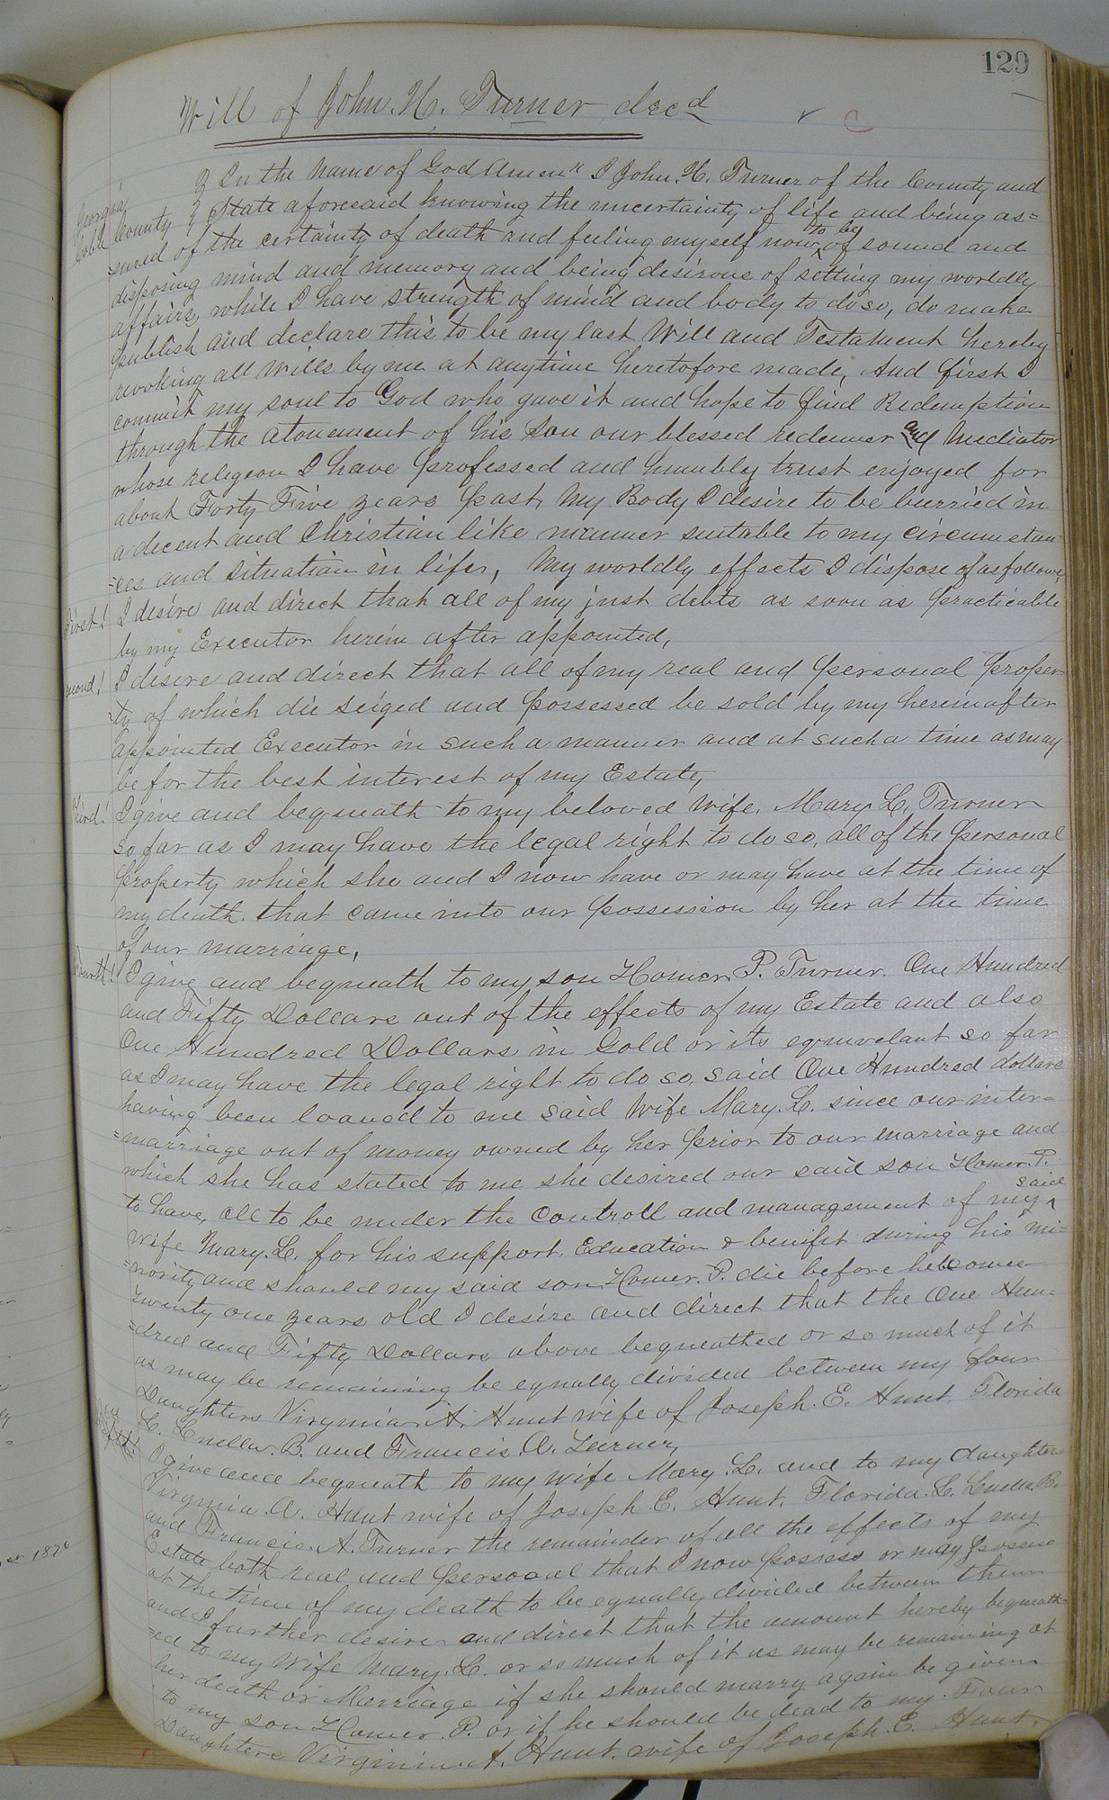 129
Will of John. H. Turner decd
Georgia
Cobb County
In the Name of God Amen I John. H. Turner of the County and
State aforesaid knowing the uncertainty of life and being as=
sured of the certainty of death and feeling myself now to be of sound and
disposing mind and memory and being desirous of setting my worldly
affairs, while I have strength of mind and body to do so, do make
publish and declare this to be my last Will and Testament hereby
revoking all Wills by me at anytime heretofore made, And first I
commit my soul to God who gave it and hope to find Redemption
through the atonement of his Son our blessed redeemer and Mediator
whose religeon I have professed and humbly trust enjoyed for
about Forty Five years past, My Body I desire to be burried in
a decent and Christian like manner suitable to my circumstan
=ces and situation in life, My worldly effects I dispose of as follows,
First! I desire and direct that all of my just debts as soon as practicable
by my Executor herein after appointed,
second! I disire and direct that all of my real and personal proper
ty of which die seized and possessed be sold by my hereinafter
appointed Executor in such a manner and at such a time as may
be for the best interest of my Estate,
Third! I give and bequeath to my beloved Wife. Mary L, Turner
so far as I may have the legal right to do so, all of the personal
property which she and I now have or may have at the time of
my death that came into our possession by her at the time
of our marriage,
Fourth! I give and bequeath to my son Homer P. Turner. One Hundred
and Fifty Dollars out of the effects of my Estate and also
One Hundred Dollars in Gold or its equivelant so far
as I may have the legal right to do so, said One Hundred dollars
having been loaned to me said Wife Mary. L. since our inter=
=marriage out of money owned by her prior to our marriage and
which she has stated to me she desired our said son Homer. P.
to have, all to be under the controll and management of my said
wife Mary. L. for his support. Education & benifit during his mi=
=nority and should my said son Homer. P. die before he becomes
twenty one years old I desire and direct that the One Hun=
=dred and Fifty Dollars above bequeathed or so much of it
as may be remaining be equally divided between my four
Daughters Virginia. A. Hunt wife of Joseph. E. Hunt. Florida
L. Luella. B. and Francis. A. Turner,
I give and bequeath to my wife Mary. L. and to my daughters
Virginia. A. Hunt wife of Joseph E. Hunt, Florida. L. Luella. B.
and Francis. A. Turner the remainder of all the effects of my
Estate both real and personal that I now possess or may possess
at the time of my death to be equally divided between them
and I further desire and direct that the amount hereby bequeath
=ed to my Wife Mary. L. or so much of it as may be remaining at
her death or Marriage if she should marry again be given
to my son Homer. P. or if he should be dead to my Four
Daughters Virginia A. Hunt. wife of Joseph. E. Hunt.